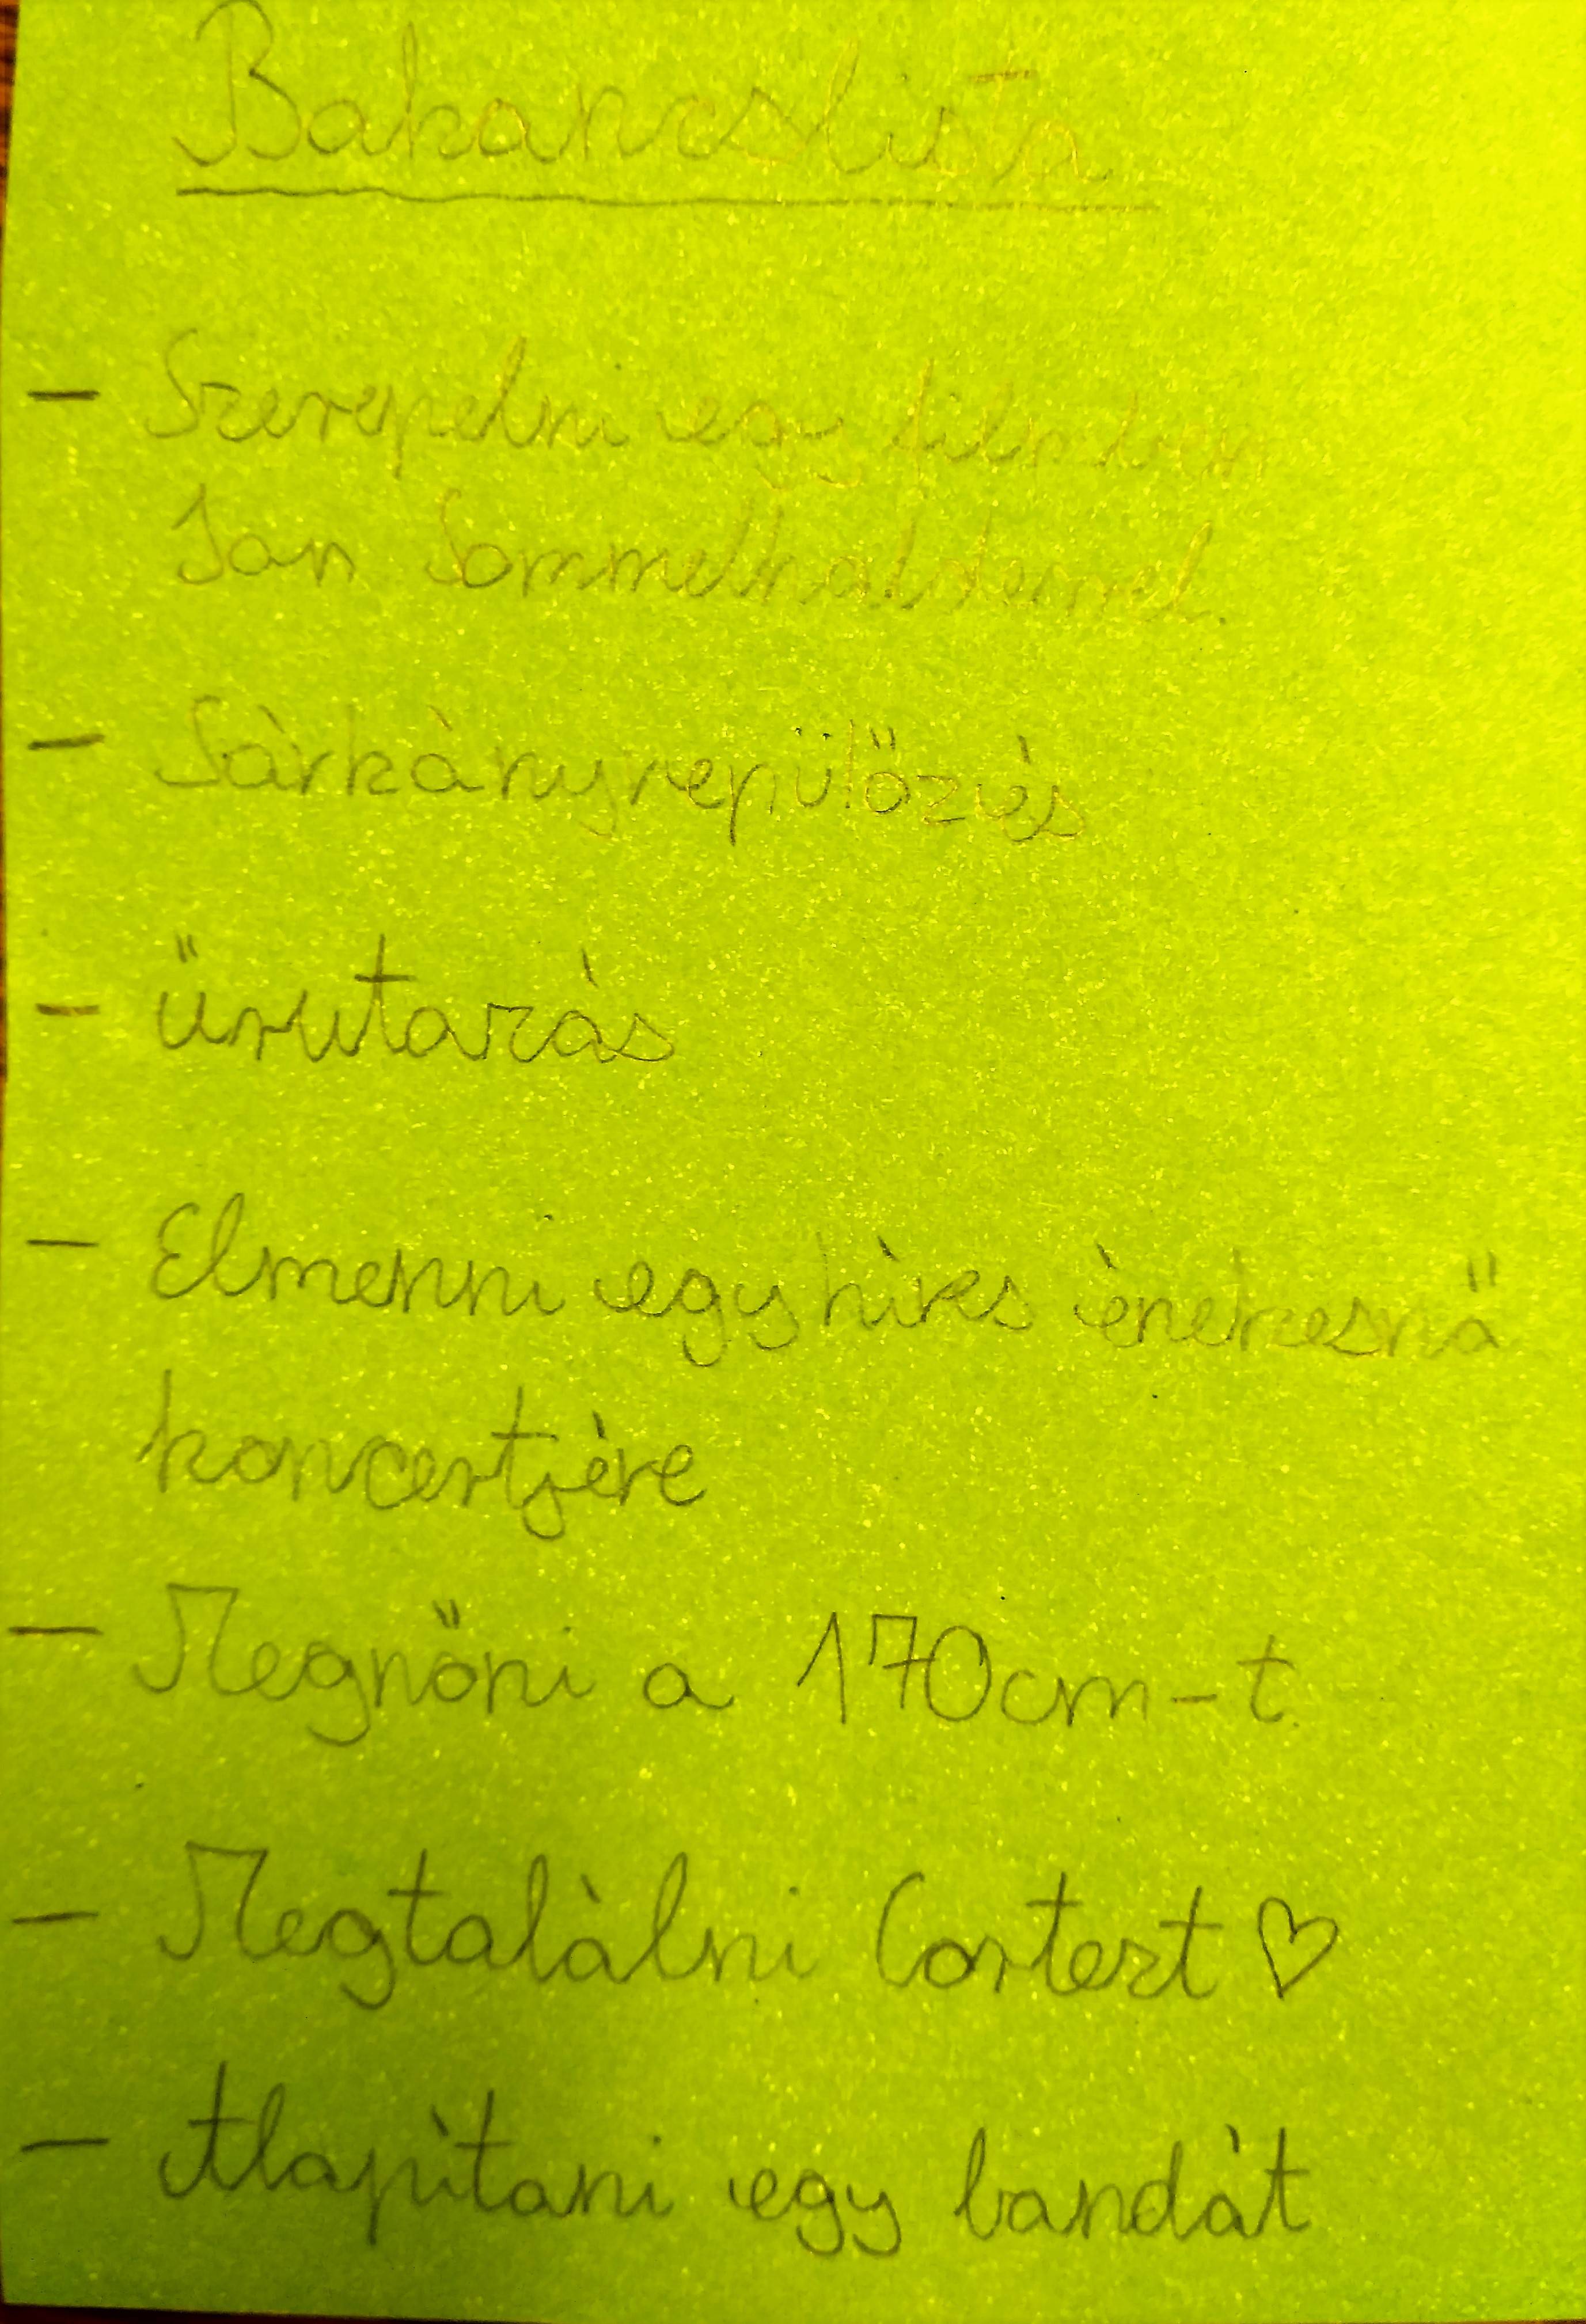 Bakancslista
- Szerepelni egy filmben
Ian Sommelhalderrel.
- Sárkányrepülőzés
- űrutazás
- Elmenni egy híres énekesnő
koncertjére
- Megnőni a 170cm-t
- Megtalálni Cortezt ♡
- Alapítani egy bandát